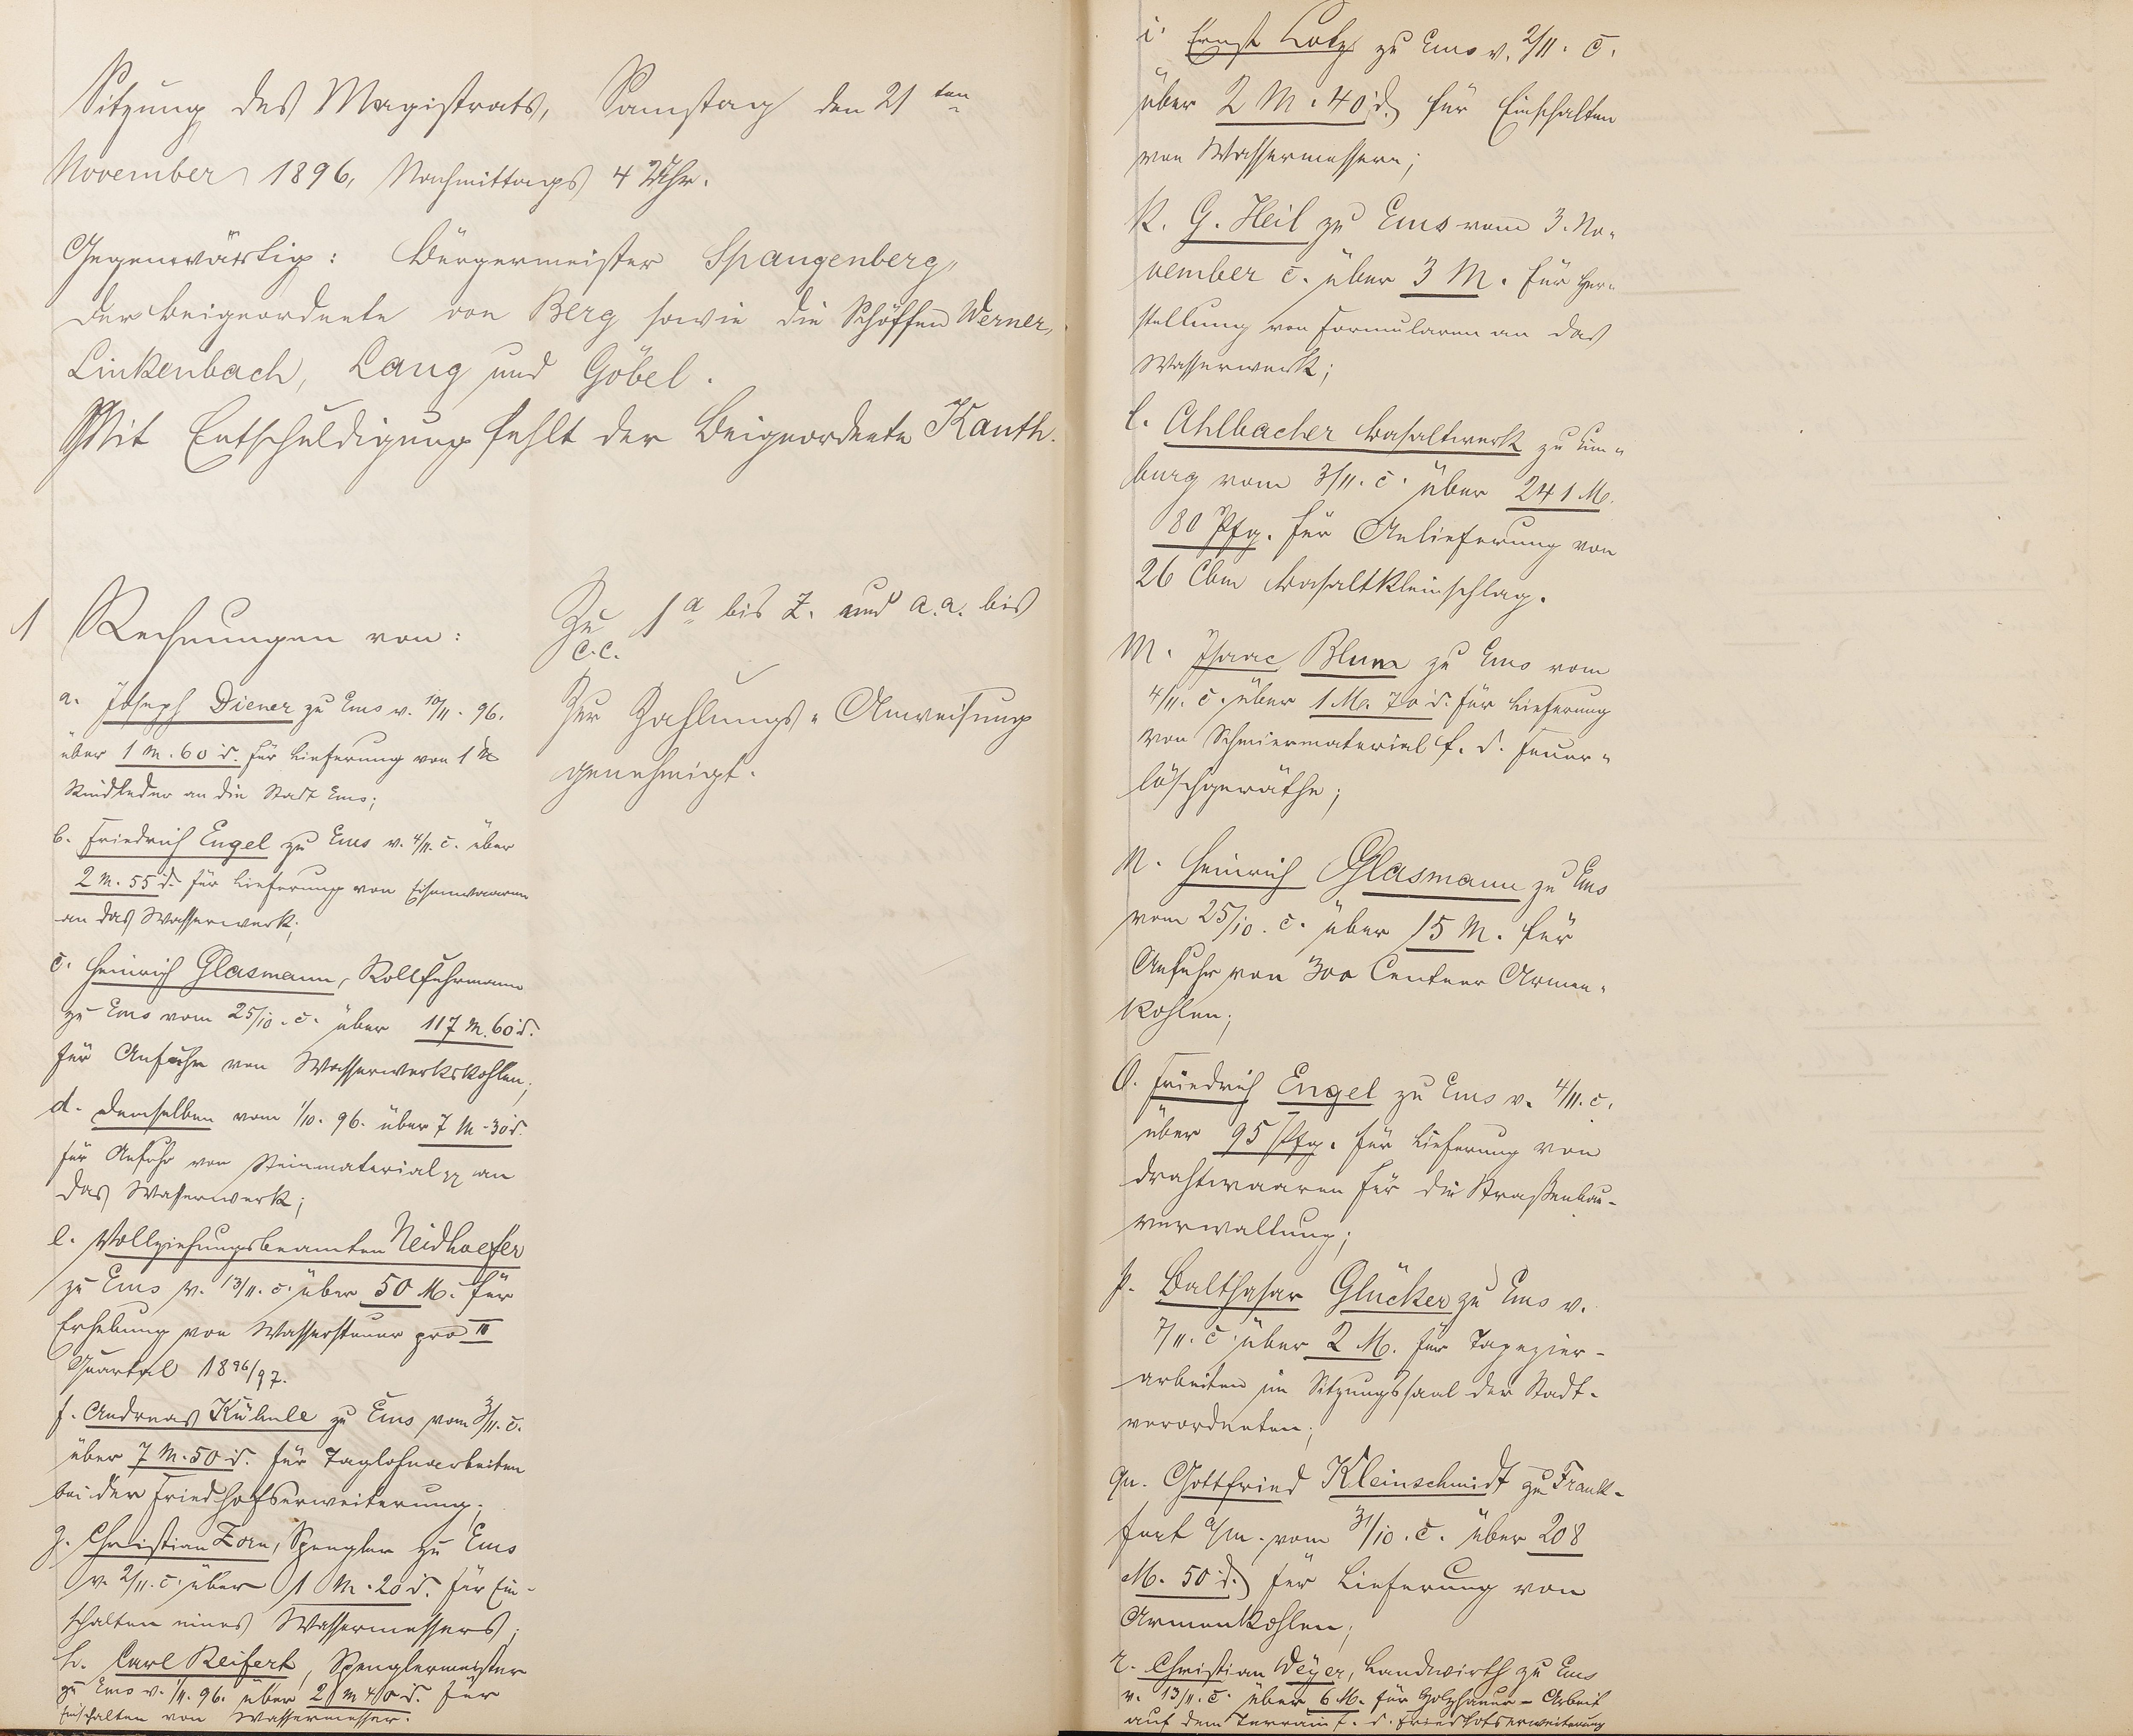 Sitzung des Magistrats, Samstag den 21ten
November 1896, Nachmittags 4 Uhr.
Gegenwärtig: Bürgermeister Spangenberg,
der Beigeordnete von Berg sowie die Schöffen Werner,
Linkenbach, Lang und Göbel.
Mit Entschuldigung fehlt der Beigeordnete Kauth.
1 Rechnungen von:
a. Joseph Diener zu Ems v. 10/11. 96.
über 1 M. 60 d. für Lieferung von 1 ℔
Rindleder an die Stadt Ems;
b. Friedrich Engel zu Ems v. 4/11. c. über
2 M. 55 d. für Lieferung von Eisenwaaren
an das Wasserwerk;
c. Heinrich Glasmann, Rollfuhrmann
zu Ems vom 25/10. c. über 117 M. 60 d.
für Anfuhr von Wasserwerkskohlen;
d. demselben vom 1/10. 96. über 7 M. 30 d.
für Anfuhr von Steinmaterial pp an
das Wasserwerk;
e. Vollziehungsbeamten Neidhoefer
zu Ems v. 13/11. c. über 50 M. für
Erhebung von Wassersteuer pro III
Quartal 1896/97.
f. Andreas Kühnle zu Ems vom 3/11. c.
über 7 M. 50 d. für Taglohnarbeiten
bei der Friedhofserweiterung;
g. Christian Zorn, Spengler zu Ems
v. 2/11. c. über 1 M. 20 d. für Ein-
schalten eines Wassermessers;
h. Carl Reifert, Spenglermeister
zu Ems v. 1/11. 96. über 2 M 40 d. für
Einschalten von Wassermesser.
Zu 1a bis Z. und a.a. bis
c.c.
Zur Zahlungs-Anweisung
genehmigt.
i. Ernst Lotz zu Ems v. 2/11. c.
über 2 M. 40 d. für Einschalten
von Wassermessern;
k. G. Heil zu Ems vom 3. No-
vember c. über 3 M. für Her-
stellung von Formularen an das
Wasserwerk;
l. Ahlbacher Basaltwerk zu Lim-
burg vom 3/11. c. über 241 M.
80 Pfg. für Anlieferung von
26 Cbm Basaltkleinschlag.
M. Isaac Blum zu Ems vom
4/11. c. über 1 M. 70 d. für Lieferung
von Schmiermaterial f. d. Feuer-
löschgeräthe;
N. Heinrich Glasmann zu Ems
vom 25/10. c. über 15 M. für
Anfuhr von 300 Centner Armen-
kohlen;
O. Friedrich Engel zu Ems v. 4/11. c.
über 95 Pfg. für Lieferung von
Drahtwaaren für die Straßenbau-
verwaltung;
p. Balthasar Glücker zu Ems v.
7/11. c. über 2 M. für Tapezier-
arbeiten im Sitzungssaal der Stadt-
verordneten;
qu. Gottfried Kleinschmidt zu Frank-
furt a/m. vom 31/10. c. über 208
M. 50 d. für Lieferung von
Armenkohlen;
r. Christian Weyer, Landwirth zu Ems
v. 13/11. c. über 6 M. für Holzhauer-Arbeit
auf dem Terrain f. d. Friedhofserweiterung